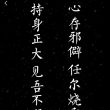 心存邪僻任尔烧
持身正大见吾不